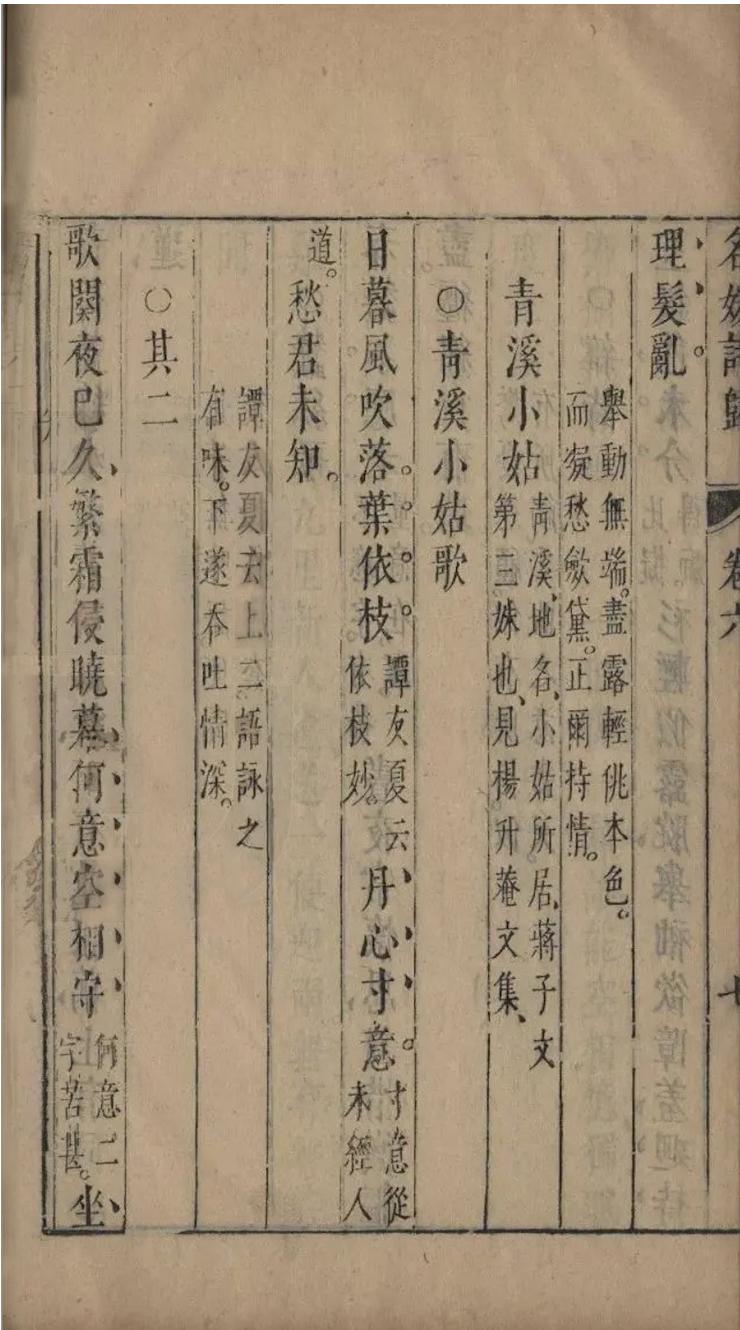 名媛詩歸 卷六 七
理髮亂。
舉動無端。盡露輕佻本色。
而凝愁斂黛。正爾持情。
青溪小姑
青溪、地名、小姑所居、蔣子文
第三妹也、見楊升菴文集、
○青溪小姑歌
日暮風吹落。葉依。枝。
譚友夏云
依枝妙。
丹心寸意。
寸意從
未經人
道。
愁君未知。
譚友夏云上二語詠之
有味。下遂吞吐情深。
○其二
歌闋夜已久繁霜侵曉幕何意空相守
何意二
字苦甚。
坐